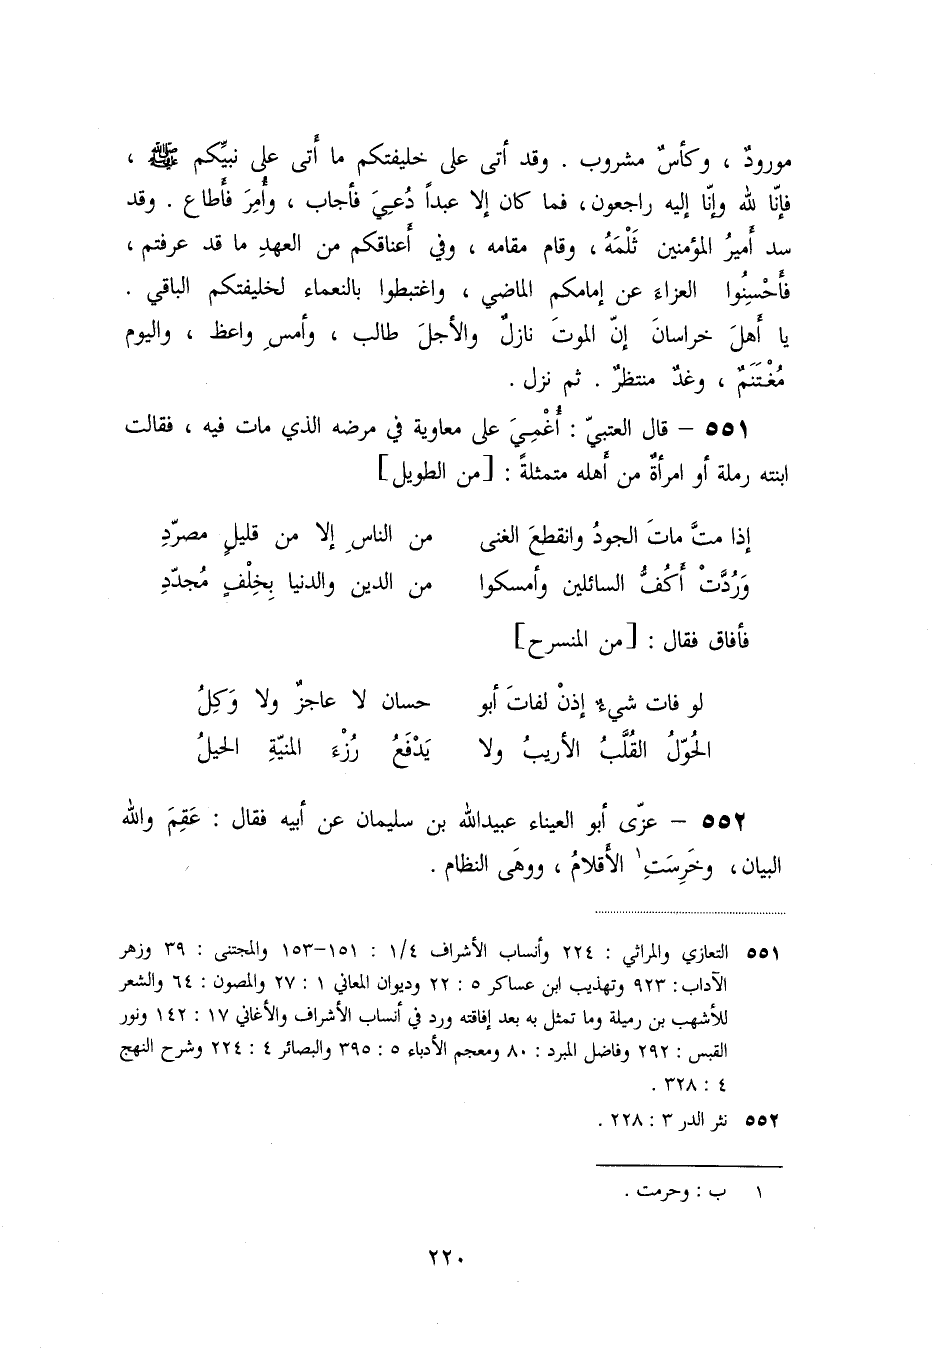 مورودٌ ، وكأسٌ مشروب . وقد أتى على خليفتكم ما أَتى على نبيِّكم ﷺ ،
فإنّا لله وإنّا إليه راجعون، فما كان إلا عبداً دُعيَ فأجاب ، وأُمِرَ فأَطاع . وقد
سد أَميرُ المؤمنين ثَلْمَهُ ، وقام مقامه ، وفي أَعناقكم من العهدِ ما قد عرفتم ،
فأَحْسِنُوا العزاءَ عن إمامكم الماضي ، واغتبطوا بالنعماء لخليفتكم الباقي .
يا أَهلَ خراسانَ إنّ الموتَ نازلٌ والأجلَ طالب ، وأمسِ واعظ ، واليوم
مُغْتَنَمٌ ، وغدٌ منتظرٌ . ثم نزل .
٥٥١ – قال العتبيّ : أُغْمِيَ على معاوية في مرضه الذي مات فيه ، فقالت
ابنته رملة أو امرأةٌ من أَهله متمثلةً : [من الطويل]
إذا متَّ ماتَ الجودُ وانقطعَ الغنى من الناسِ إلا من قليلٍ مصرّدِ
وَرُدَّتْ أَكُفُّ السائلين وأمسكوا من الدين والدنيا بِخِلْفٍ مُجدّدِ
فأفاق فقال : [من المنسرح]
لو فات شيءٌ إذنْ لفاتَ أبو حسان لا عاجزٌ ولا وَكِلُ
الحُوّلُ القُلَّبُ الأريبُ ولا يَدْفَعُ رُزْءَ المنيّةِ الحيلُ
٥٥٢ – عزّى أبو العيناء عبيدالله بن سليمان عن أبيه فقال : عَقِمَ والله
البيان، وخَرِسَتِ١ الأَقلامُ ، ووهَى النظام .
٥٥١ التعازي والمراثي : ٢٢٤ وأنساب الأشراف ١/٤ : ١٥١–١٥٣ والمجتنى : ٣٩ وزهر
الآداب: ٩٢٣ وتهذيب ابن عساكر ٥ : ٢٢ وديوان المعاني ١ : ٢٧ والمصون : ٦٤ والشعر
للأشهب بن رميلة وما تمثل به بعد إفاقته ورد في أنساب الأشراف والأغاني ١٧ : ١٤٢ ونور
القبس : ٢٩٢ وفاضل المبرد : ٨٠ ومعجم الأدباء ٥ : ٣٩٥ والبصائر ٤ : ٢٢٤ وشرح النهج
٤ : ٣٢٨ .
٥٥٢ نثر الدر ٣ : ٢٢٨ .
١ ب : وحرمت .
٢٢٠